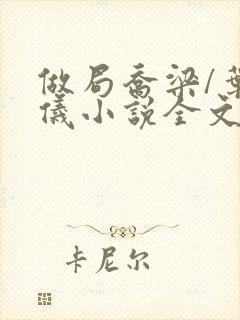 做局乔梁/葉
儀小说全文
卡尼尔